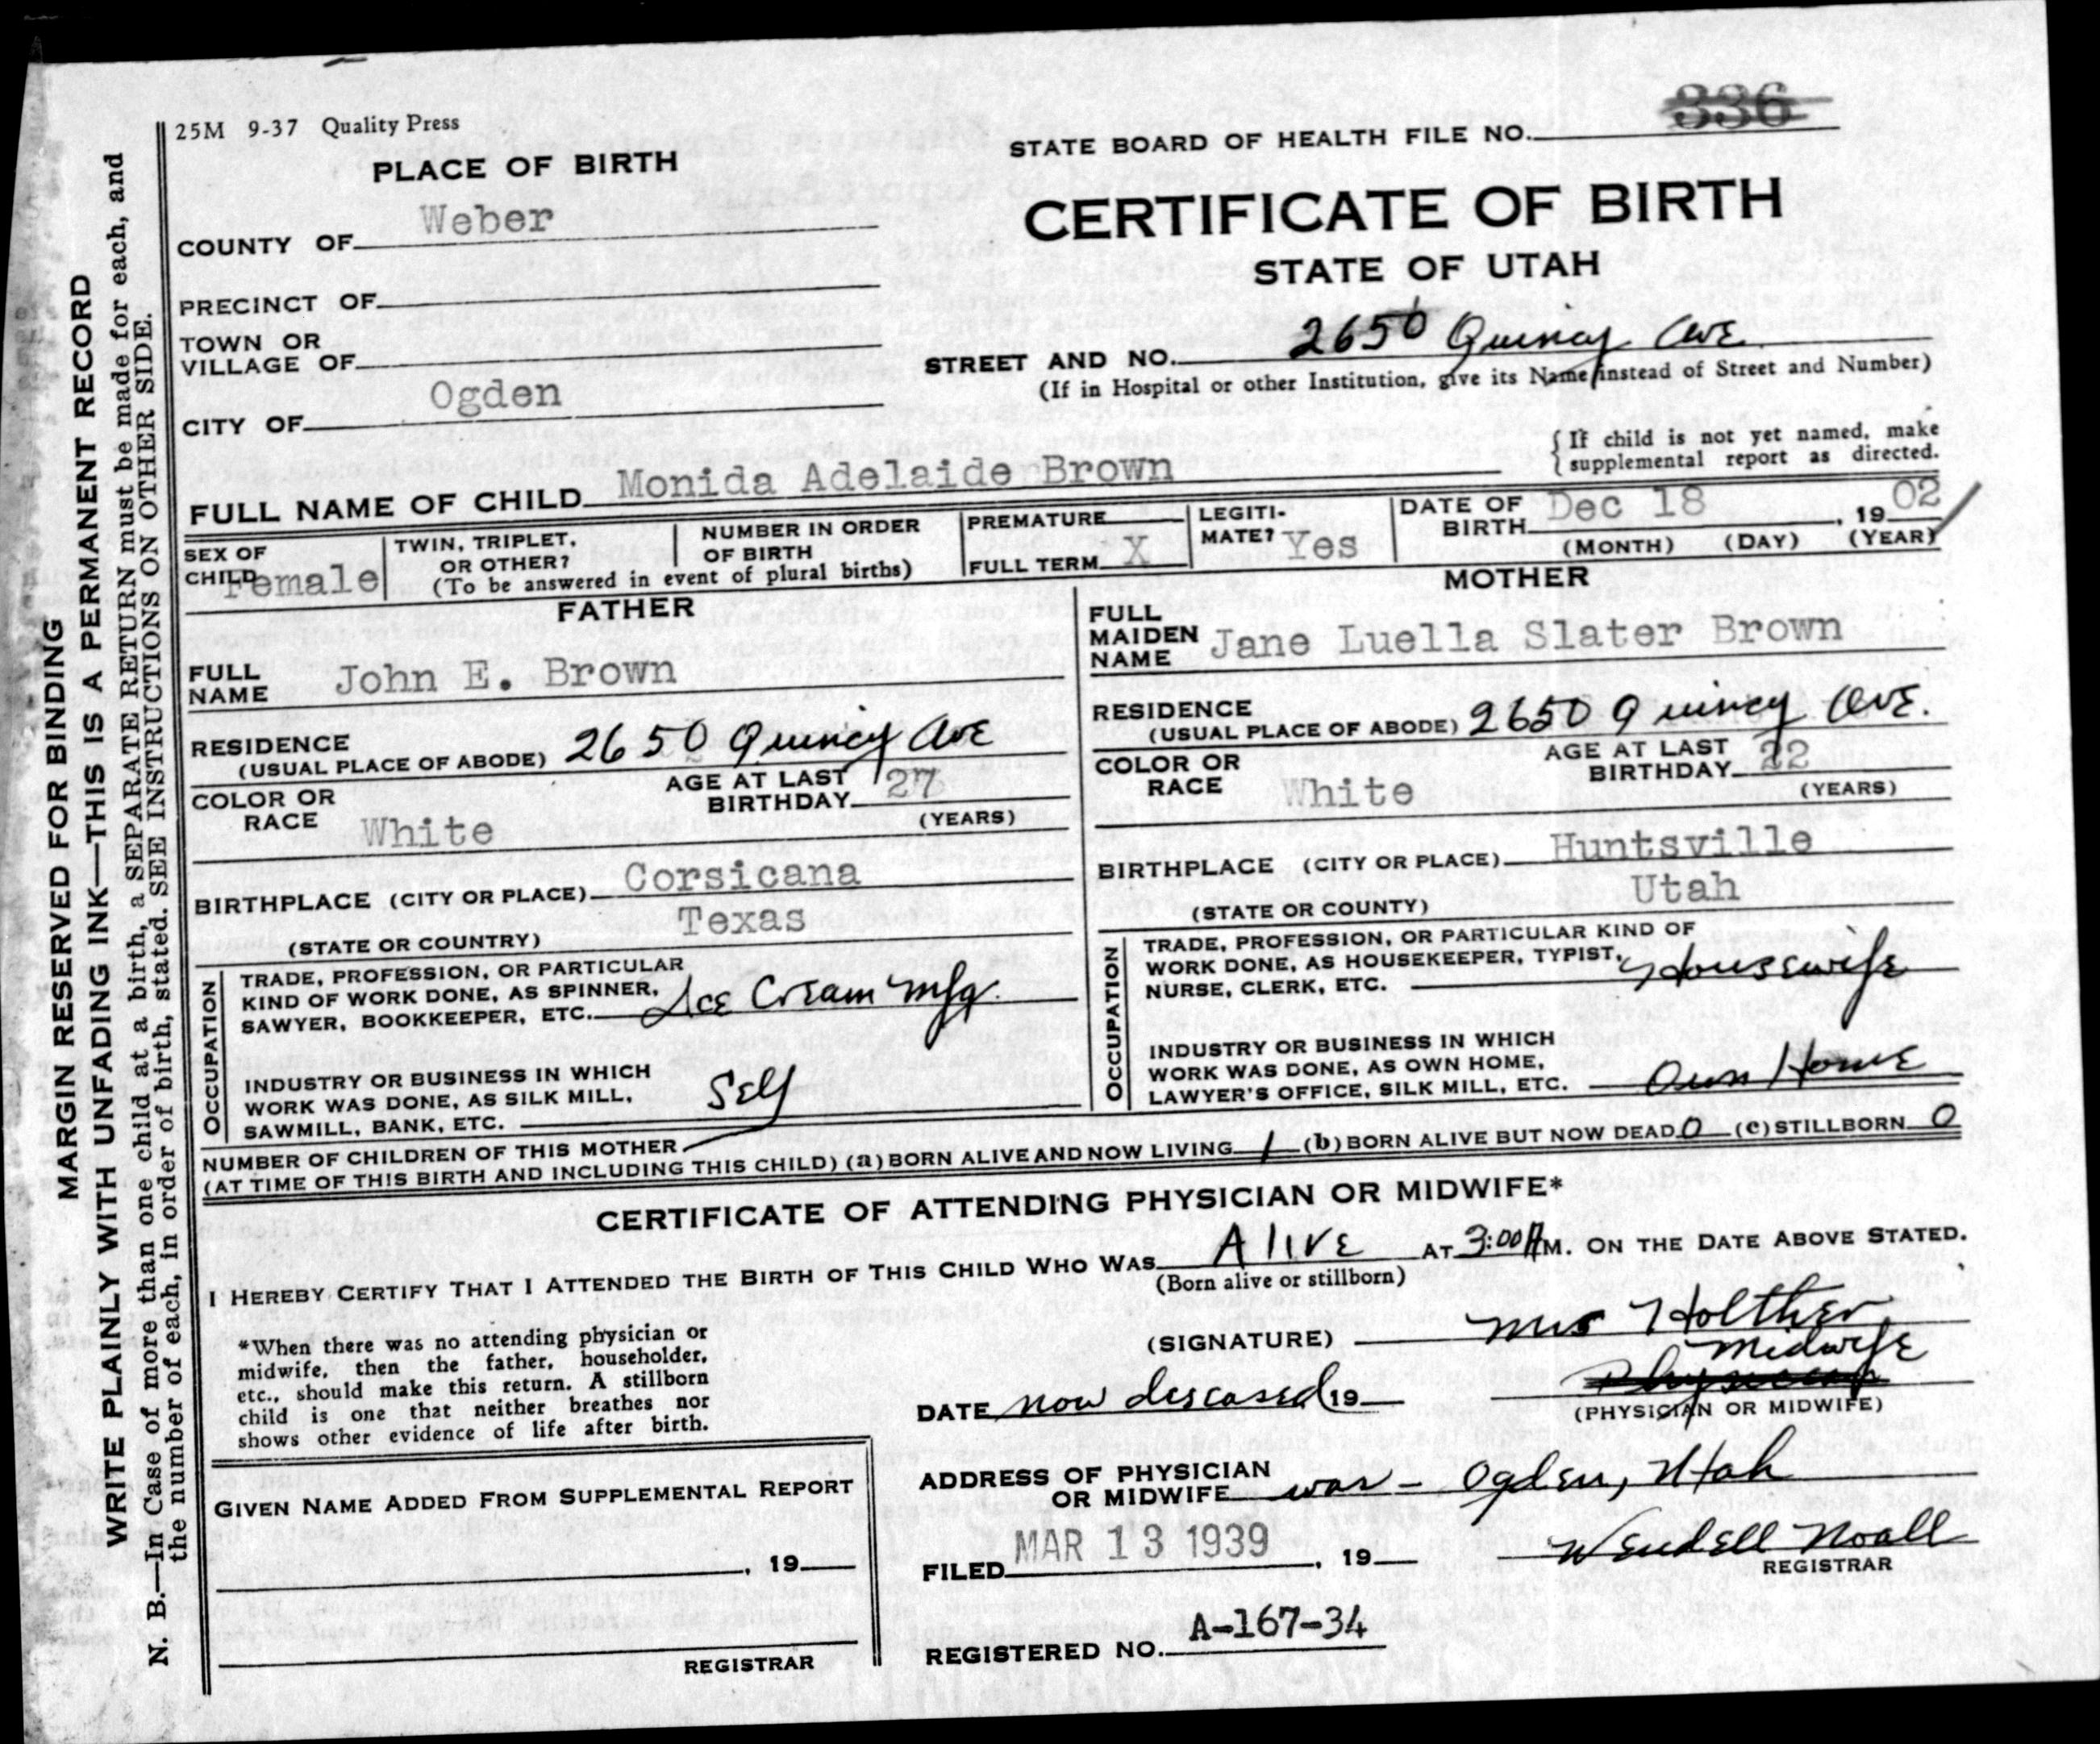 25M 9-37 Quality Press
STATE BOARD OF HEALTH FILE NO. 336
PLACE OF BIRTH
CERTIFICATE OF BIRTH
STATE OF UTAH
COUNTY OF Weber
PRECINCT OF
TOWN OR
VILLAGE OF
STREET AND NO. 2650 Quincy Ave.
(If in Hospital or other Institution, give its Name instead of Street and Number)
CITY OF Ogden
{ If child is not yet named, make
supplemental report as directed.
FULL NAME OF CHILD Monida Adelaide Brown
SEX OF
CHILD Female
TWIN, TRIPLET,
OR OTHER?
NUMBER IN ORDER
OF BIRTH
(To be answered in event of plural births)
PREMATURE
FULL TERM X
LEGITI-
MATE? Yes
DATE OF
BIRTH Dec 18, 1902
(MONTH) (DAY) (YEAR)
FATHER
FULL
NAME John E. Brown
RESIDENCE
(USUAL PLACE OF ABODE) 2650 Quincy Ave
COLOR OR
RACE White
AGE AT LAST
BIRTHDAY 27
(YEARS)
BIRTHPLACE (CITY OR PLACE) Corsicana
(STATE OR COUNTRY) Texas
OCCUPATION
TRADE, PROFESSION, OR PARTICULAR
KIND OF WORK DONE, AS SPINNER,
SAWYER, BOOKKEEPER, ETC. Ice Cream Mfg.
INDUSTRY OR BUSINESS IN WHICH
WORK WAS DONE, AS SILK MILL,
SAWMILL, BANK, ETC. Self
MOTHER
FULL
MAIDEN
NAME Jane Luella Slater Brown
RESIDENCE
(USUAL PLACE OF ABODE) 2650 Quincy Ave.
COLOR OR
RACE White
AGE AT LAST
BIRTHDAY 22
(YEARS)
BIRTHPLACE (CITY OR PLACE) Huntsville
(STATE OR COUNTY) Utah
OCCUPATION
TRADE, PROFESSION, OR PARTICULAR KIND OF
WORK DONE, AS HOUSEKEEPER, TYPIST,
NURSE, CLERK, ETC. Housewife
INDUSTRY OR BUSINESS IN WHICH
WORK WAS DONE, AS OWN HOME,
LAWYER'S OFFICE, SILK MILL, ETC. Own Home
NUMBER OF CHILDREN OF THIS MOTHER
(AT TIME OF THIS BIRTH AND INCLUDING THIS CHILD) (a) BORN ALIVE AND NOW LIVING 1 (b) BORN ALIVE BUT NOW DEAD 0 (c) STILLBORN 0
CERTIFICATE OF ATTENDING PHYSICIAN OR MIDWIFE*
I HEREBY CERTIFY THAT I ATTENDED THE BIRTH OF THIS CHILD WHO WAS Alive AT 3:00 AM. ON THE DATE ABOVE STATED.
(Born alive or stillborn)
*When there was no attending physician or
midwife, then the father, householder,
etc., should make this return. A stillborn
child is one that neither breathes nor
shows other evidence of life after birth.
(SIGNATURE) Mrs Holther
Midwife
Physician
(PHYSICIAN OR MIDWIFE)
DATE now desceased 19
ADDRESS OF PHYSICIAN
OR MIDWIFE was - Ogden, Utah
GIVEN NAME ADDED FROM SUPPLEMENTAL REPORT
, 19
REGISTRAR
FILED MAR 13 1939, 19
Wendell Noall
REGISTRAR
REGISTERED NO. A-167-34
MARGIN RESERVED FOR BINDING
WRITE PLAINLY WITH UNFADING INK—THIS IS A PERMANENT RECORD
N. B.—In Case of more than one child at a birth, a SEPARATE RETURN must be made for each, and
the number of each, in order of birth, stated. SEE INSTRUCTIONS ON OTHER SIDE.